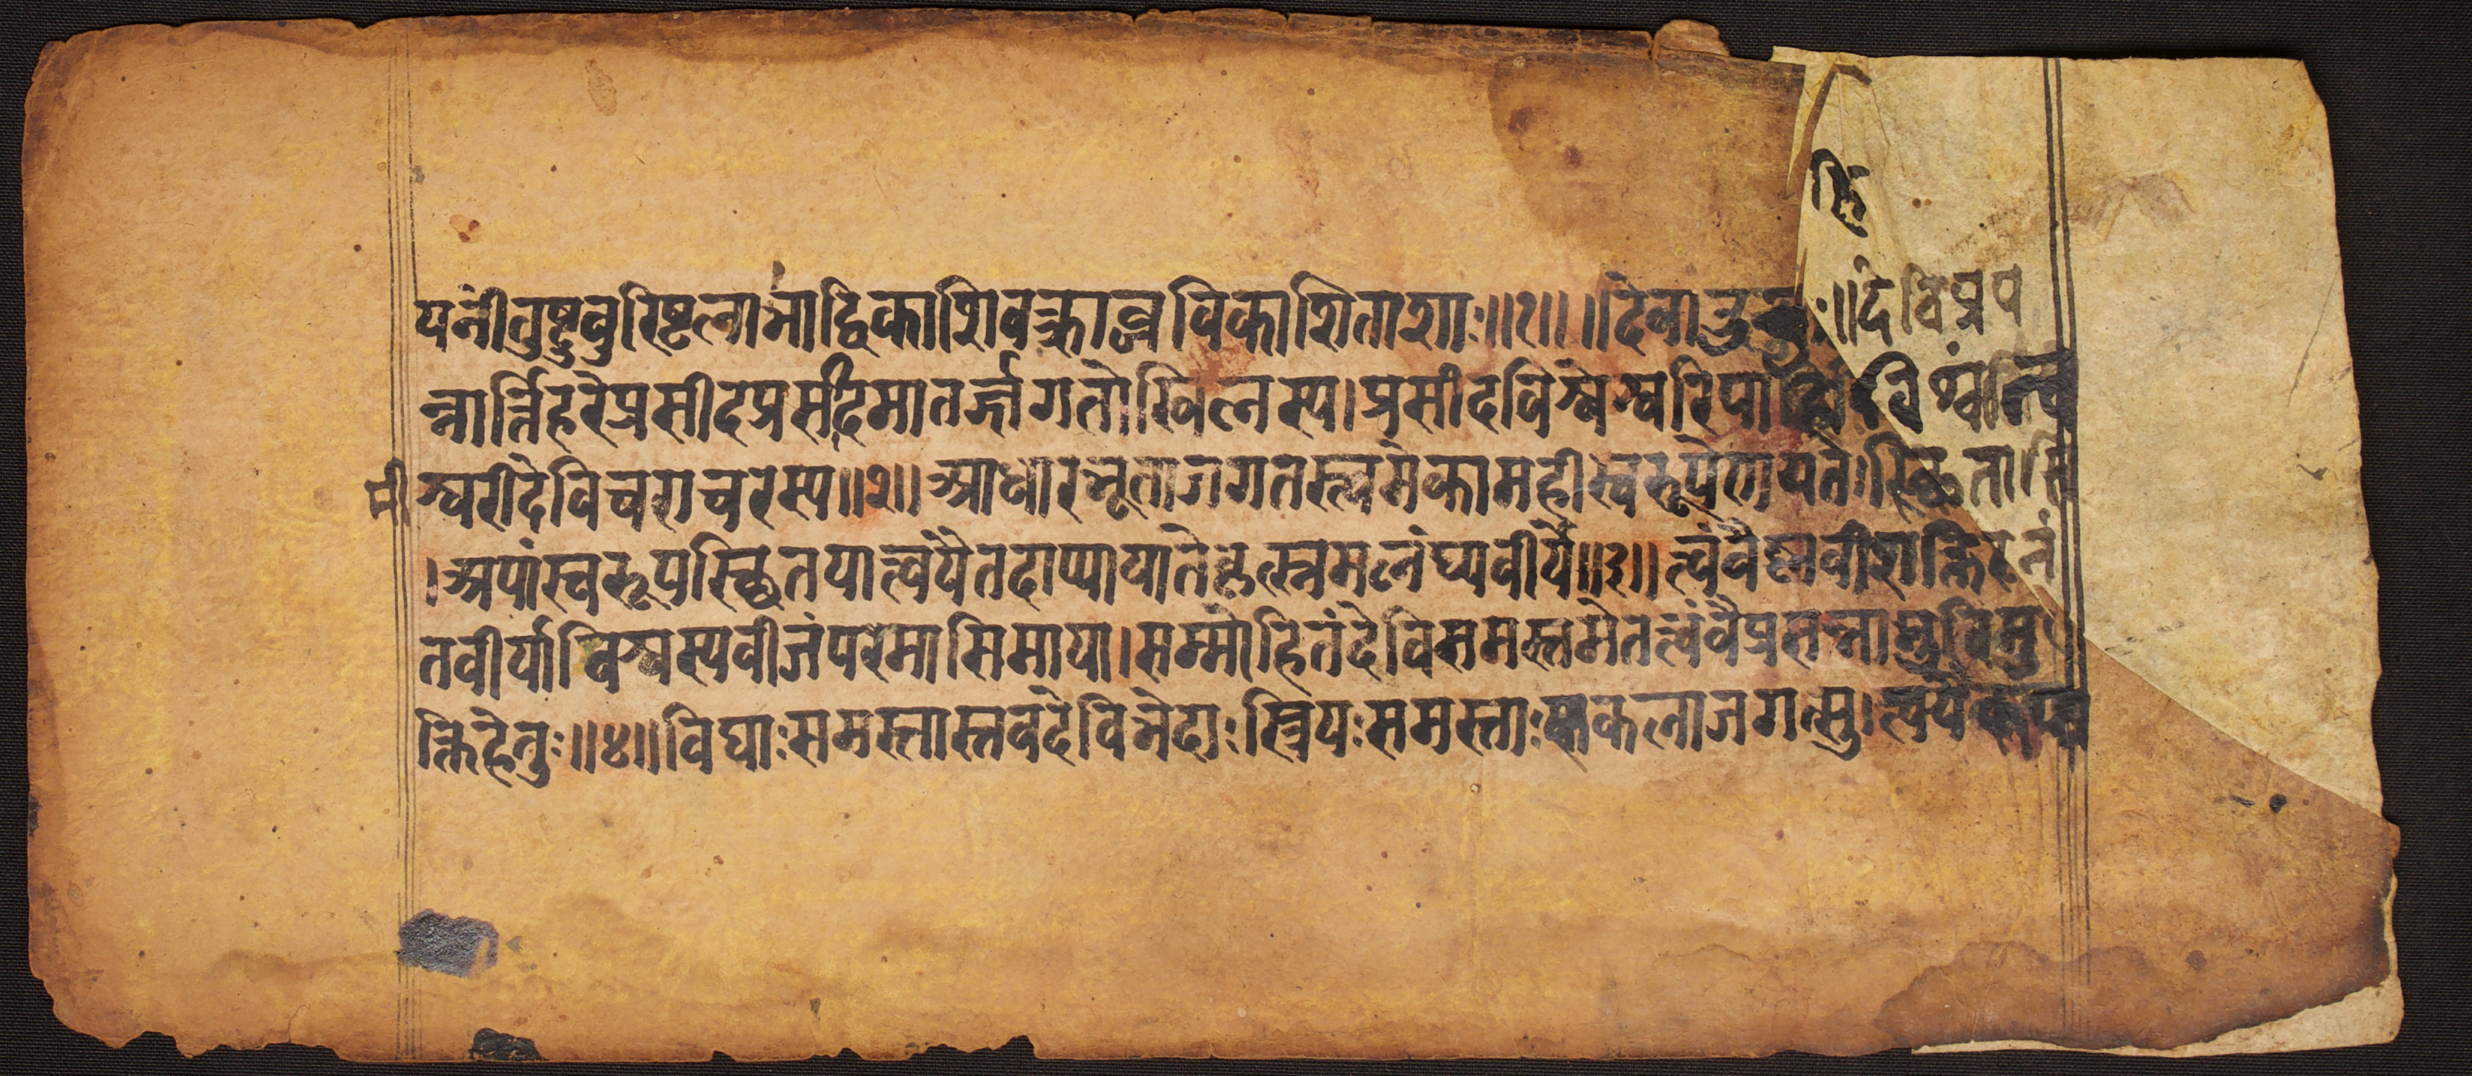 हि
यनीं तुष्टुवुरिष्टलाभाद्विकाशिवक्त्राब्जविकाशिताशाः॥१॥ ॥देवा ऊचुः॥ देवि प्रप
न्नार्त्तिहरे प्रसीद प्रसीद मातर्ज्जगतोखिलस्य। प्रसीद विश्वेश्वरि पाहि विश्वं त्व
मी
श्वरी देवि चराचरस्य॥२॥ आधारभूता जगतस्त्वमेका महीस्वरूपेण यतः स्थितासि
।अपां स्वरूपस्थितया त्वयैतदाप्यायाते कृत्स्नमलंघ्यवीर्ये॥३॥ त्वं वैष्णवी शक्तिरनं
तवीर्या विश्वस्य वीजं परमासि माया। सम्मोहितं देवि समस्तमेतत्त्वं वै प्रसन्ना भुवि मु
क्तिहेतुः॥४॥ विद्याः समस्तास्तव देवि भेदाः स्त्रियः समस्ताः सकला जगत्सु। त्वयैकया